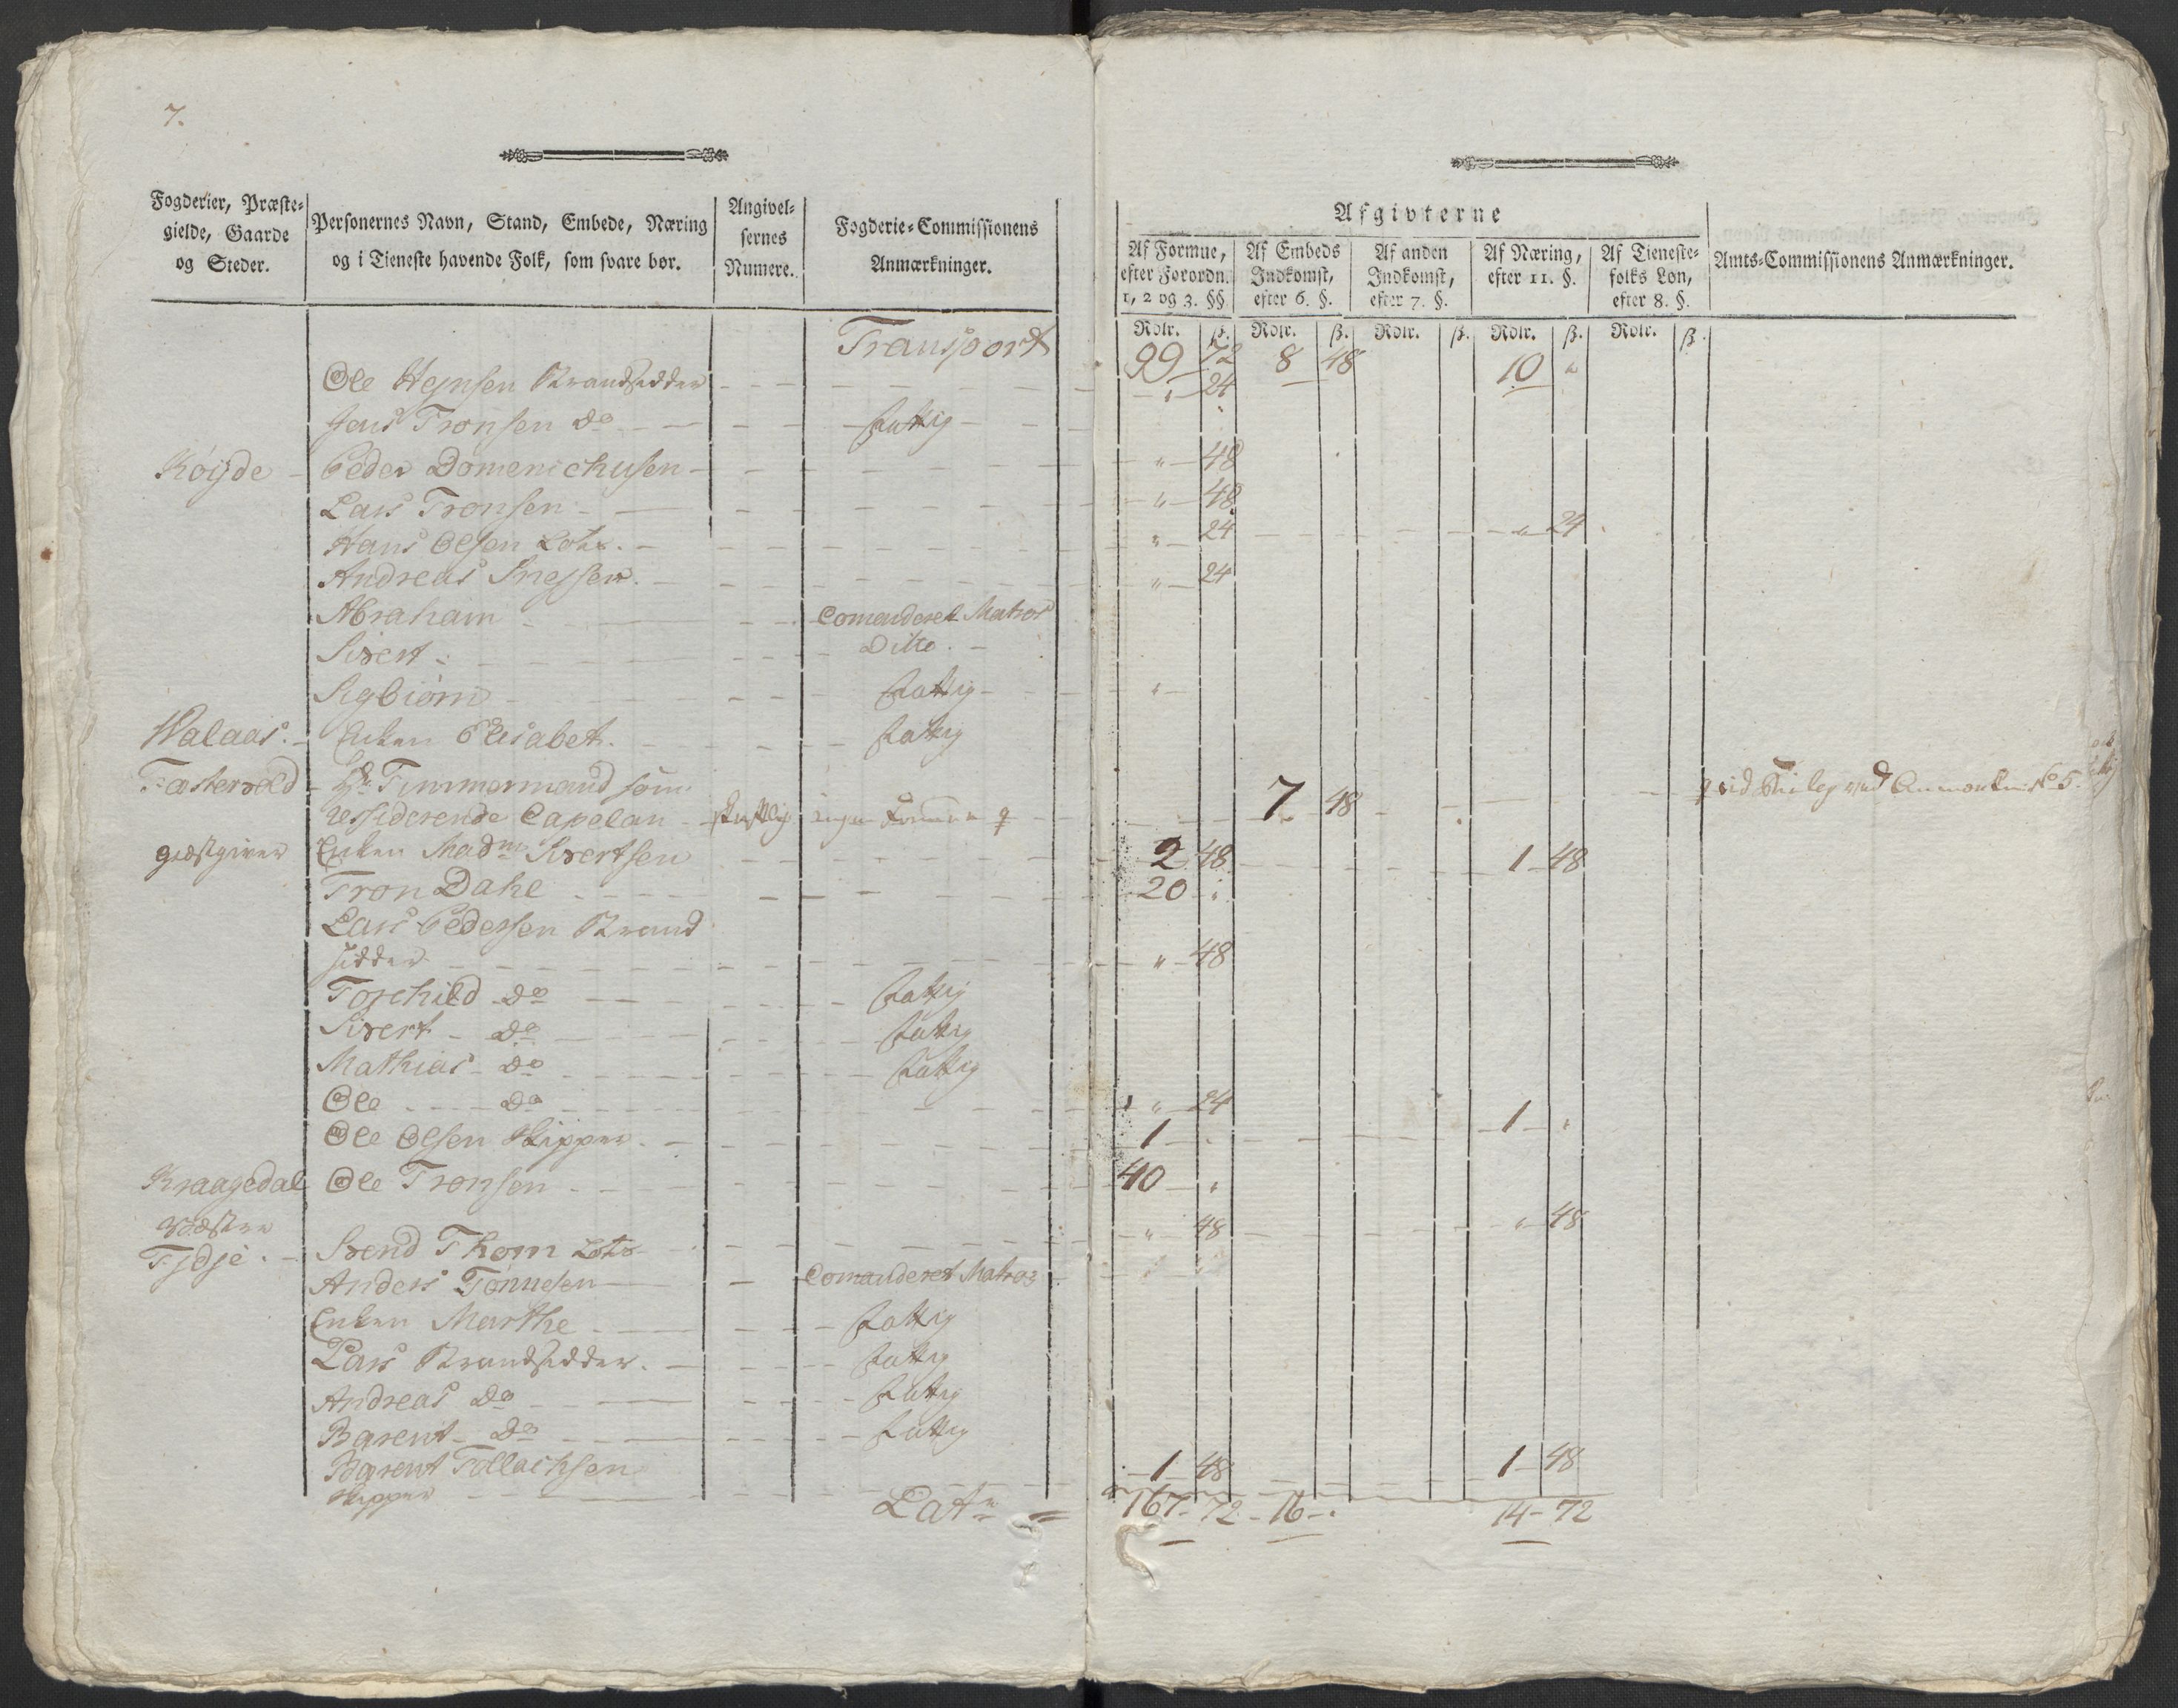 7.
Fogderier, Præste-
gielde, Gaarde
og Steder.
Personernes Navn, Stand, Embede, Næring
og i Tieneste havende Folk, som svare bør.
Angivel-
sernes
Numere.
Fogderie-Commissionens
Anmærkninger.
Afgivterne
Af Formue,
efter Forordn.
1, 2 og 3. §§.
Af Embeds
Indkomst,
efter 6. §.
Af anden
Indkomst,
efter 7. §.
Af Næring,
efter 11. §.
Af Tieneste-
folks Løn,
efter 8. §.
Amts-Commissionens Anmærkninger.
Rdlr. ß. Rdlr. ß. Rdlr. ß. Rdlr. ß. Rdlr. ß.
Transport 99 72 8 48 10 "
Ole Hejnsen Strandsidder " 24
Jens Tronsen do fattig
Røijde Peder Domenichusen " 48
Lars Tronsen " 48
Hans Olsen Lots " 24 " 24
Andreas " 24
Abraham Comanderet Matros
Sivert Ditto
Sigbiørn fattig "
Walaas Enken Elisabet fattig
Fastervold Hr Timmermand som
residerende Capelan skriftlig ingen Formue 7 48
giæstgiver Enken Madme Sivertsen 2 48 1 48
Tron Dahl 20 "
Lars Pedersen Strand
sidder " 48
Torchild do fattig
Sivert do fattig
Mathias do fattig
Ole do " 24
Ole Olsen Skipper 1 " 1 "
Kraagedal Ole Tronsen 40 "
Westre
Fjdje Svend Thom Lots " 48 " 48
Anders Tønnesen Comanderet Matros
Enken Marthe fattig
Lars Strandsidder fattig
Andreas do fattig
Barent do fattig
Barent Tollachsen
Skipper 1 48 1 48
Lats 167 72 16 " 14 72